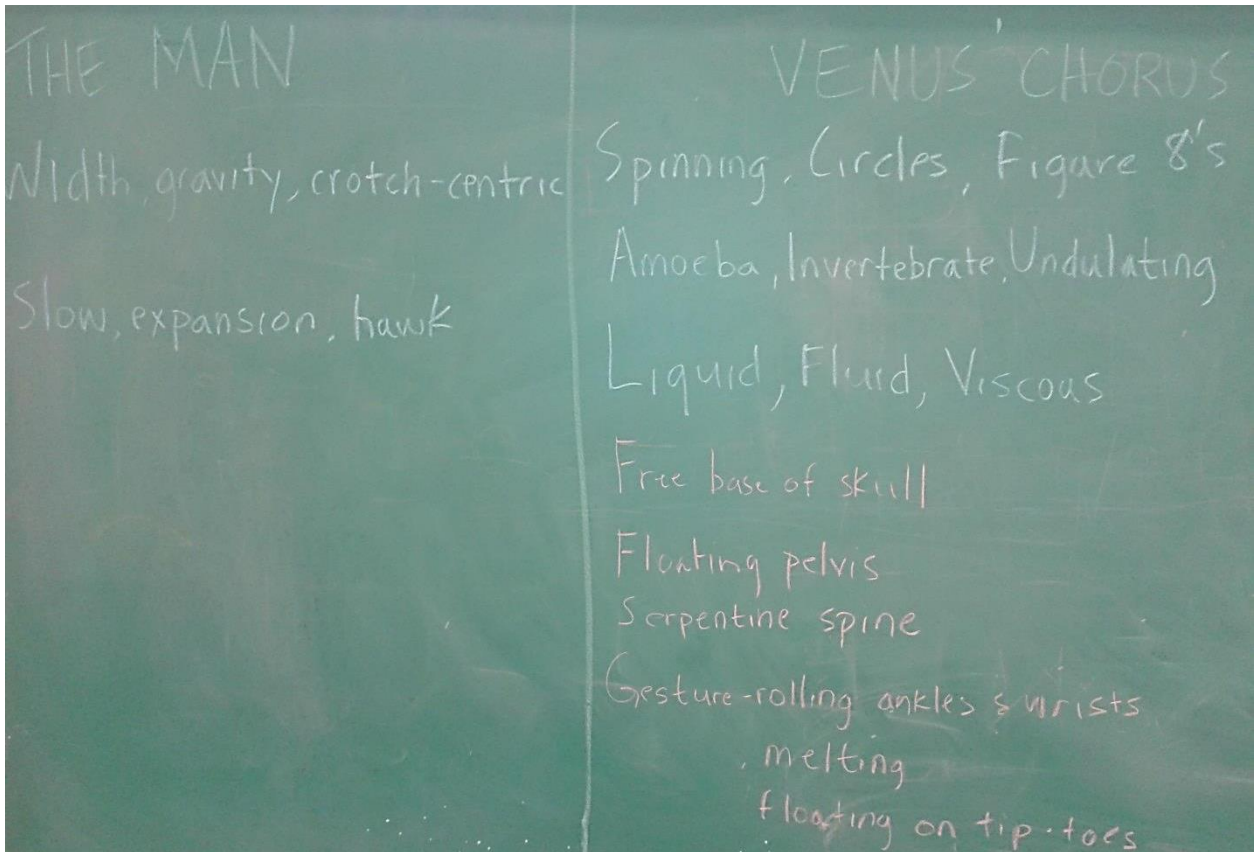 THE MAN
Width, gravity, crotch-centric
Slow, expansion, hawk
VENUS' CHORUS
Spinning, Circles, Figure 8's
Amoeba, Invertebrate, Undulating
Liquid, Fluid, Viscous
Free base of skull
Floating pelvis
Serpentine spine
Gesture-rolling ankles & wrists
melting
floating on tip-toes